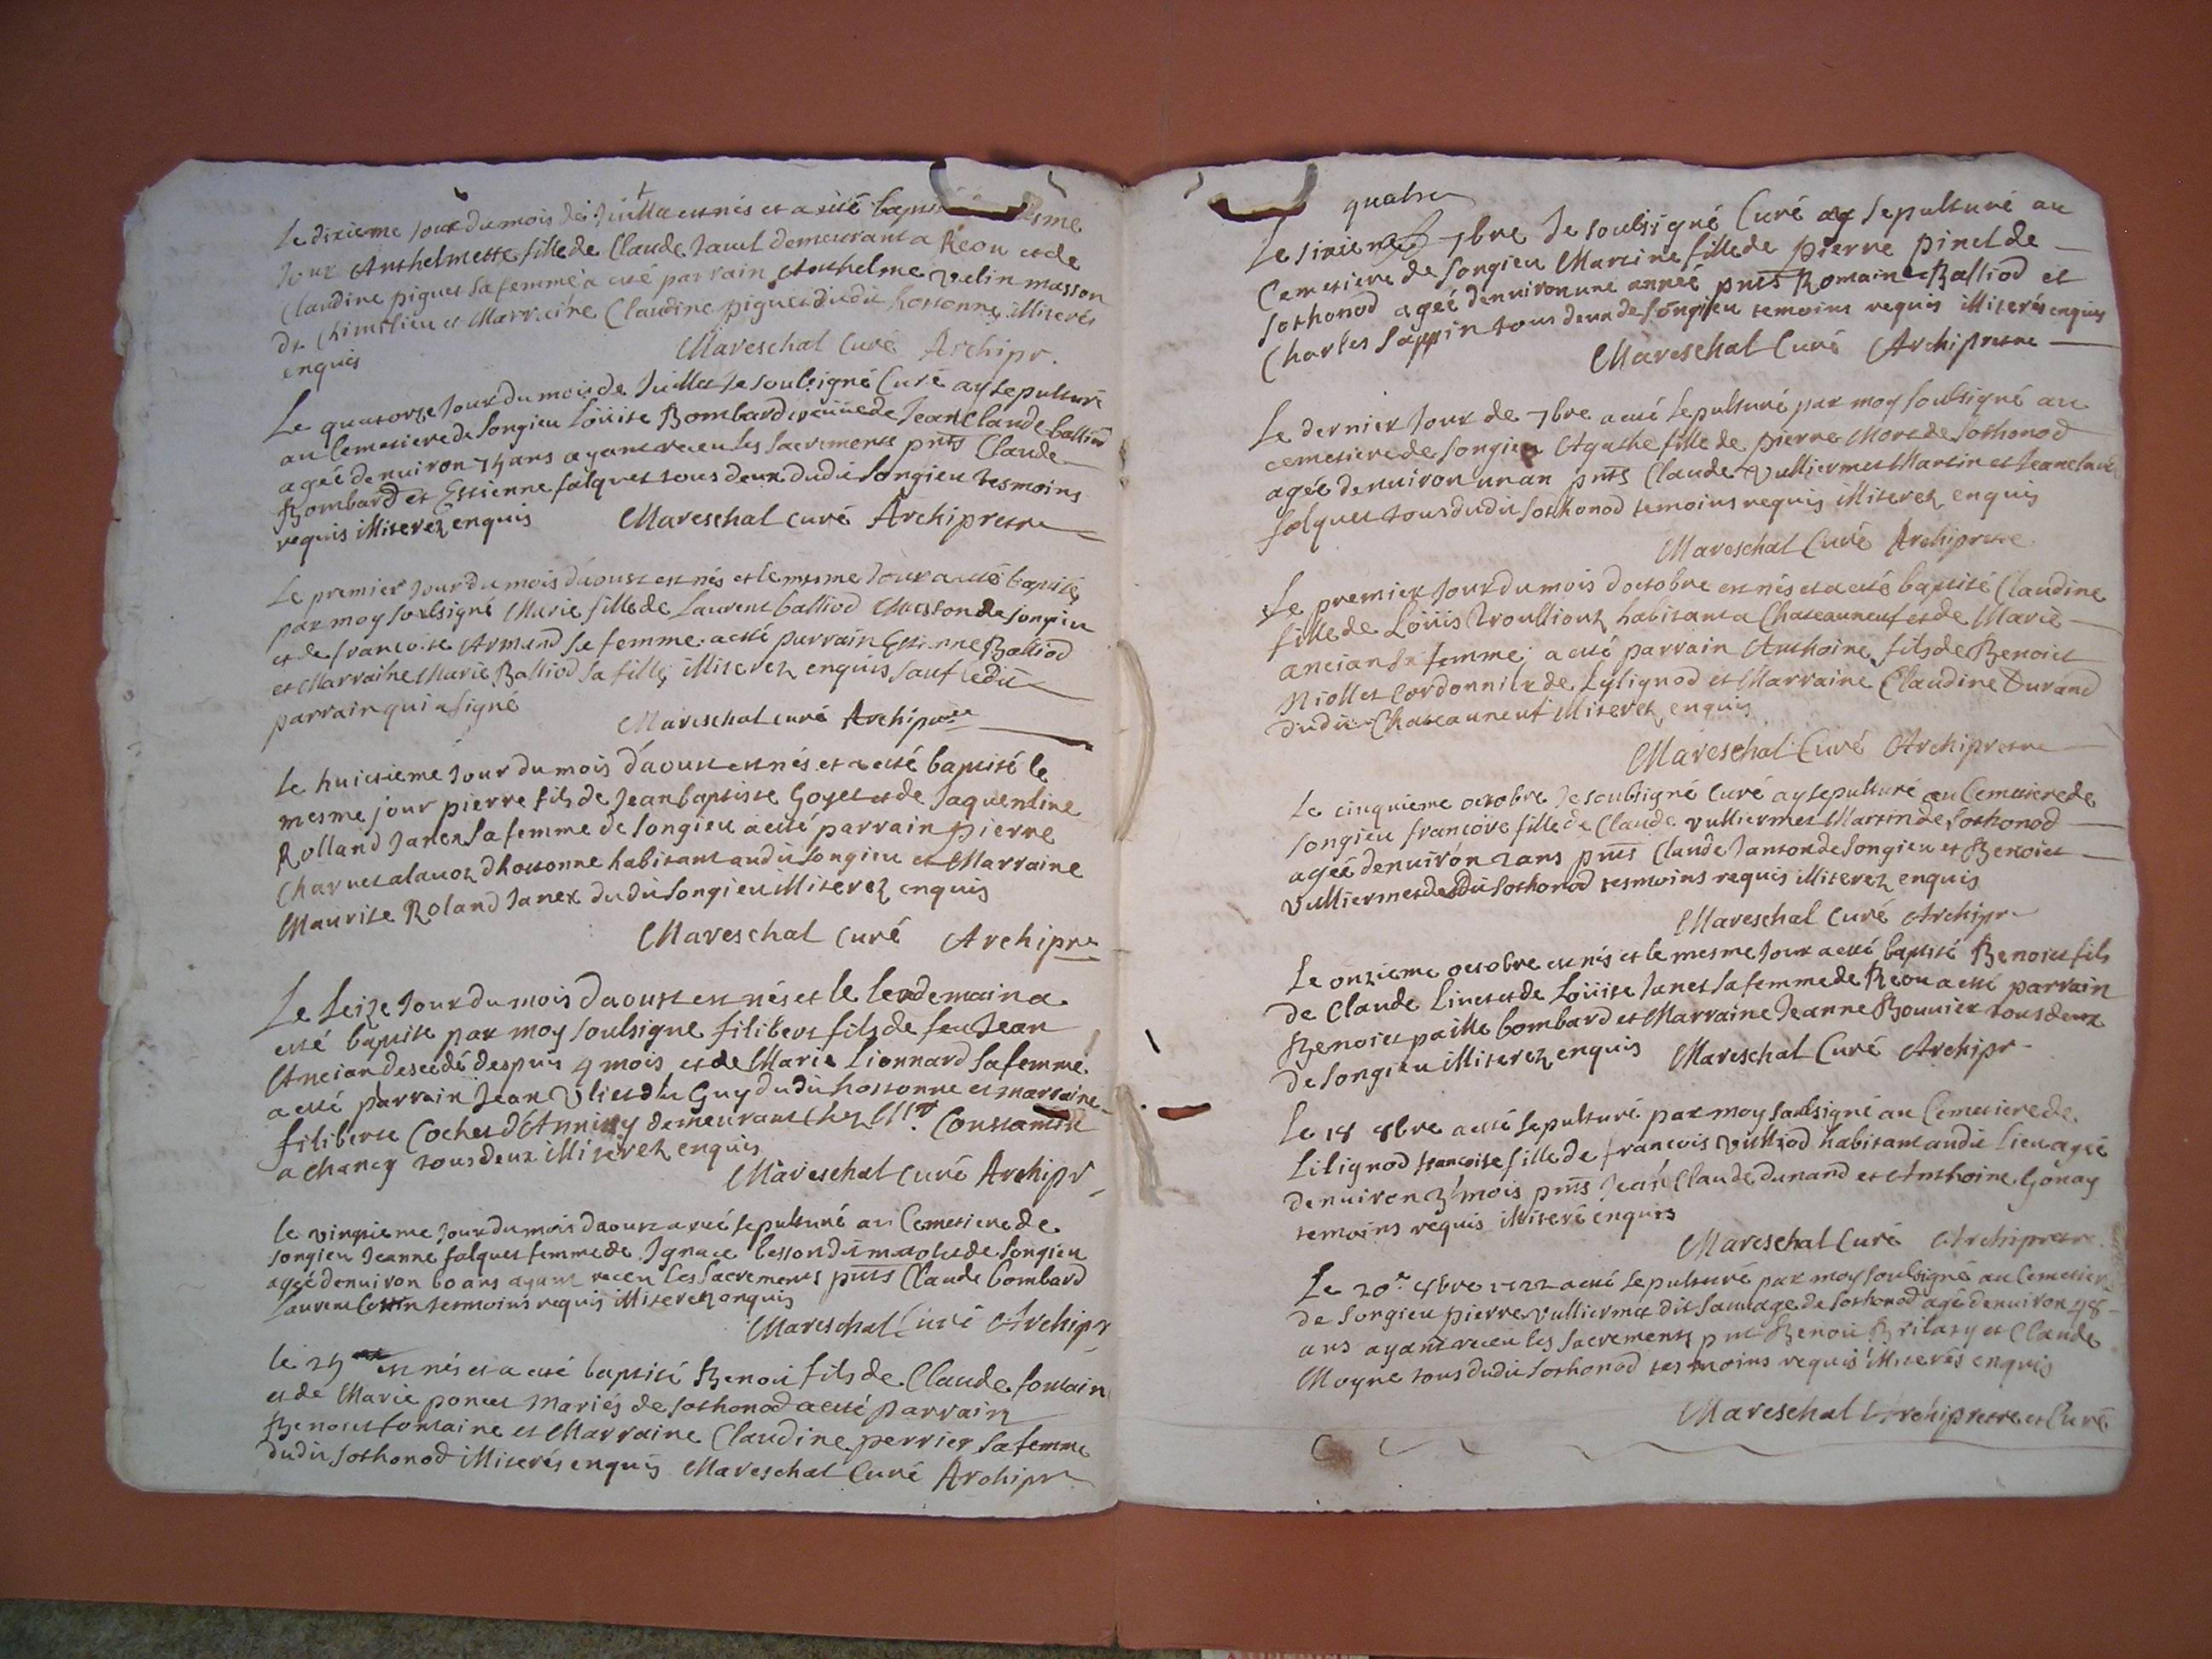 Le dixieme Jour du mois de Juillet est nés et a esté baptisé
Jour Anthelmette fille de Claude Javel demeurant a Reou et de
Claudine piguet sa femme a esté parrain Anthelme velin masson
de Chimilieu et Marraine Claudine piguet dudit hossonne illiterés
enquis
Mareschal Curé Archipr.
Le quatorze Jour du mois de Juillet Je soubsigné Curé ay sepulturé
au Cemetiere de Songieu Loüise Bombard veüüe de Jean Claude balliod
ageé denuiron 74 ans ayant receu les sacrements pnts Claude
Bombard et Estienne falquet tous deux dudit Songieu tesmoins
requis illiterez enquis
Mareschal curé Archipretre
Le premier Jour du mois d'aoust est nés et le mesme Jour a esté baptisé
par moy soubsigné Marie fille de Laurent balliod Masson de songieu
et de francoise Armand sa femme a esté parrain Estienne Balliod
et Marraine Marie Balliod sa fille illiterez enquis sauf ledit
parrain qui a signé
Mareschal curé Archiptre
Le huictieme Jour du mois d'aoust est nés et a esté baptisé le
mesme jour pierre fils de Jean baptiste Goyet et de Jaquemine
Rolland Janex sa femme de songieu a esté parrain pierre
Charvet alavoz dhossonne habitant audit songieu et Marraine
Maurise Roland Janex dudit Songieu illiterez enquis
Mareschal curé Archipre
Le Seize Jour du mois daoust est nés et le lendemain a
esté baptise par moy soubsigne filibert fils de feu Jean
Ancian desedé despuis 4 mois et de Marie Lionnard sa femme
a esté parrain Jean Guy dudit hossonne et marraine
filiberte Cochet d'Annissy demeurant Chez Mr Constantin
a Chancy tous deux illiterez enquis
Mareschal curé Archipr
le vingtieme Jour du mois daoust a esté sepulturé au Cemetiere de
songieu Jeanne falquet femme de Ignace besson du de Songieu
ageé denuiron 60 ans ayant receu les sacrements pnts Claude bombard
Laurent Cottin temoins requis illiterez enquis
Mareschal Curé Archipr
le 25 est nés et a esté baptisé Benoit fils de Claude fontaine
et de Marie poncet Mariés de sothonod a esté parrain
Benoict fontaine et Marraine Claudine perrier sa femme
dudit sothonod illiterés enquis Mareschal Curé Archipr
quatre
Le sixieme 7bre Je soubsigné Curé ay sepulturé au
Cemetiere de songieu Martine fille de pierre pinel de
sothonod ageé denuiron une anneé pnts Romain Balliod et
Charles sappin tous deux de songieu temoins requis illiterés enquis
Mareschal Curé Archipretre
Le dernier Jour de 7bre a esté sepulturé par moy soubsigné au
cemetiere de songieu Agathe fille de pierre More de sothonod
ageé denuiron un an pnts Claude vulliermet Martin et Jean claude
falquet tous dudit sothonod temoins requis illiterez enquis
Mareschal Curé Archipretre
Le premier Jour du mois doctobre est nés et a esté baptisé Claudine
fille de Loüis Troullioux habitant a Chateauneuf et de Marie
ancian sa femme a esté parrain Anthoine fils de Benoict
Niollet Cordonnier de Lylignod et Marraine Claudine Durand
dudit Chateauneuf illiterez enquis
Mareschal Curé Archipretre
Le cinquieme octobre Je soubsigné curé ay sepulturé au Cemetiere de
songieu francoise fille de Claude vulliermet Martin de sothonod
ageé denuiron 2 ans pnts Claude Janton de songieu et Benoict
vulliermet dudit sothonod tesmoins requis illiterez enquis
Mareschal Curé Archipr
Le onzieme octobre est nés et le mesme Jour a esté baptisé Benoict fils
de Claude Linet et de Loüise Janet sa femme de Reou a esté parrain
Benoict paille bombard et Marraine Jeanne Bouvier tous deux
de songieu illiterez enquis Mareschal Curé Archipr
Le 18 8bre a esté sepulturé par moy soubsigné au Cemetiere de
Lilignod francoise fille de francois Vulliod habitant audit lieu ageé
denuiron 3 mois pnts Jean Claude dunand et Anthoine Gonay
temoins requis illiteré enquis
Mareschal Curé Archipretre
Le 20e 8bre 1722 a esté sepulturé par moy soubsigné au Cemetiere
de songieu pierre vulliermet dit sauvage de sothonod agé denuiron 48
ans ayant receu les sacrements pnt Benoit Brilaty et Claude
Moyne tous dudit sothonod tesmoins requis illiterés enquis
Mareschal Archipretre et Curé